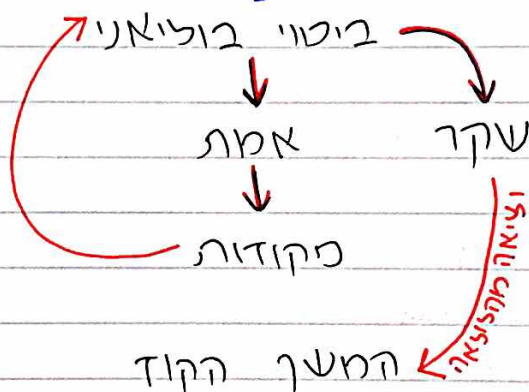 ביטוי בוליאני
אמת
שקר
פקודות
יציאה מהלולאה
המשך הקוד